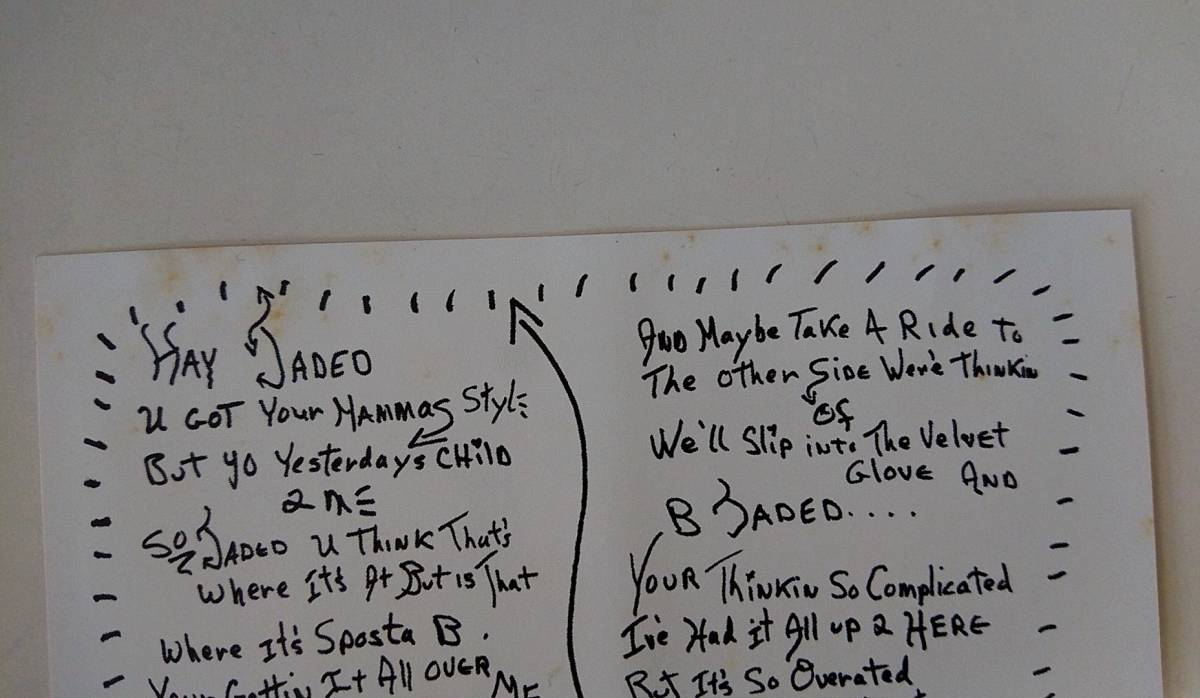 HAY JADED
U GOT Your MAMMAS Style
But yo Yesterdays CHilD
2 ME
SO JADED U THINK That's
Where It's At But is That
Where It's Sposta B.
Your Gettin It All OVER
ME
AND Maybe Take A Ride To
The other SIDE Were Thinkin
OF
We'll Slip into The Velvet
Glove AND
B JADED....
YOUR Thinkin So Complicated
I've Had it All up 2 HERE
But It's So Overated